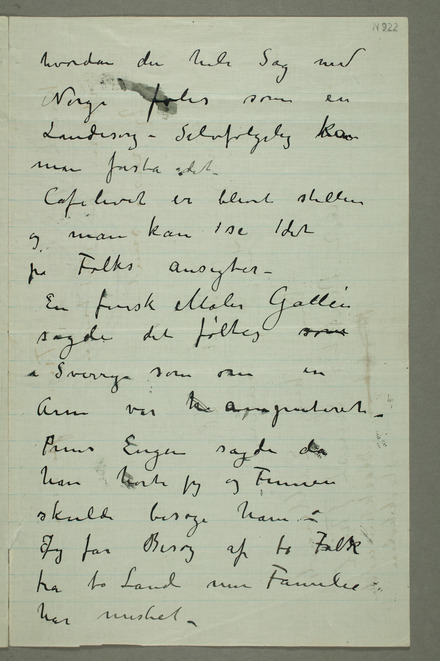 N 922
hvordan den hele Sag med
Norge føles som en
Landesorg – Selvfølgelig kan
man forstå det –
Cafelivet er blevet stille
og man kan se det
på Folks ansigter –
En finsk Maler Gallén
sagde det føltes som
i Sverrige som om en
Arm var amputeret –
Prins Eugen sagde da
han hørte jeg og Finnen
skulde besøge ham –
Jeg får Besøg af to Folk
fra to Land min Familie
har mistet –